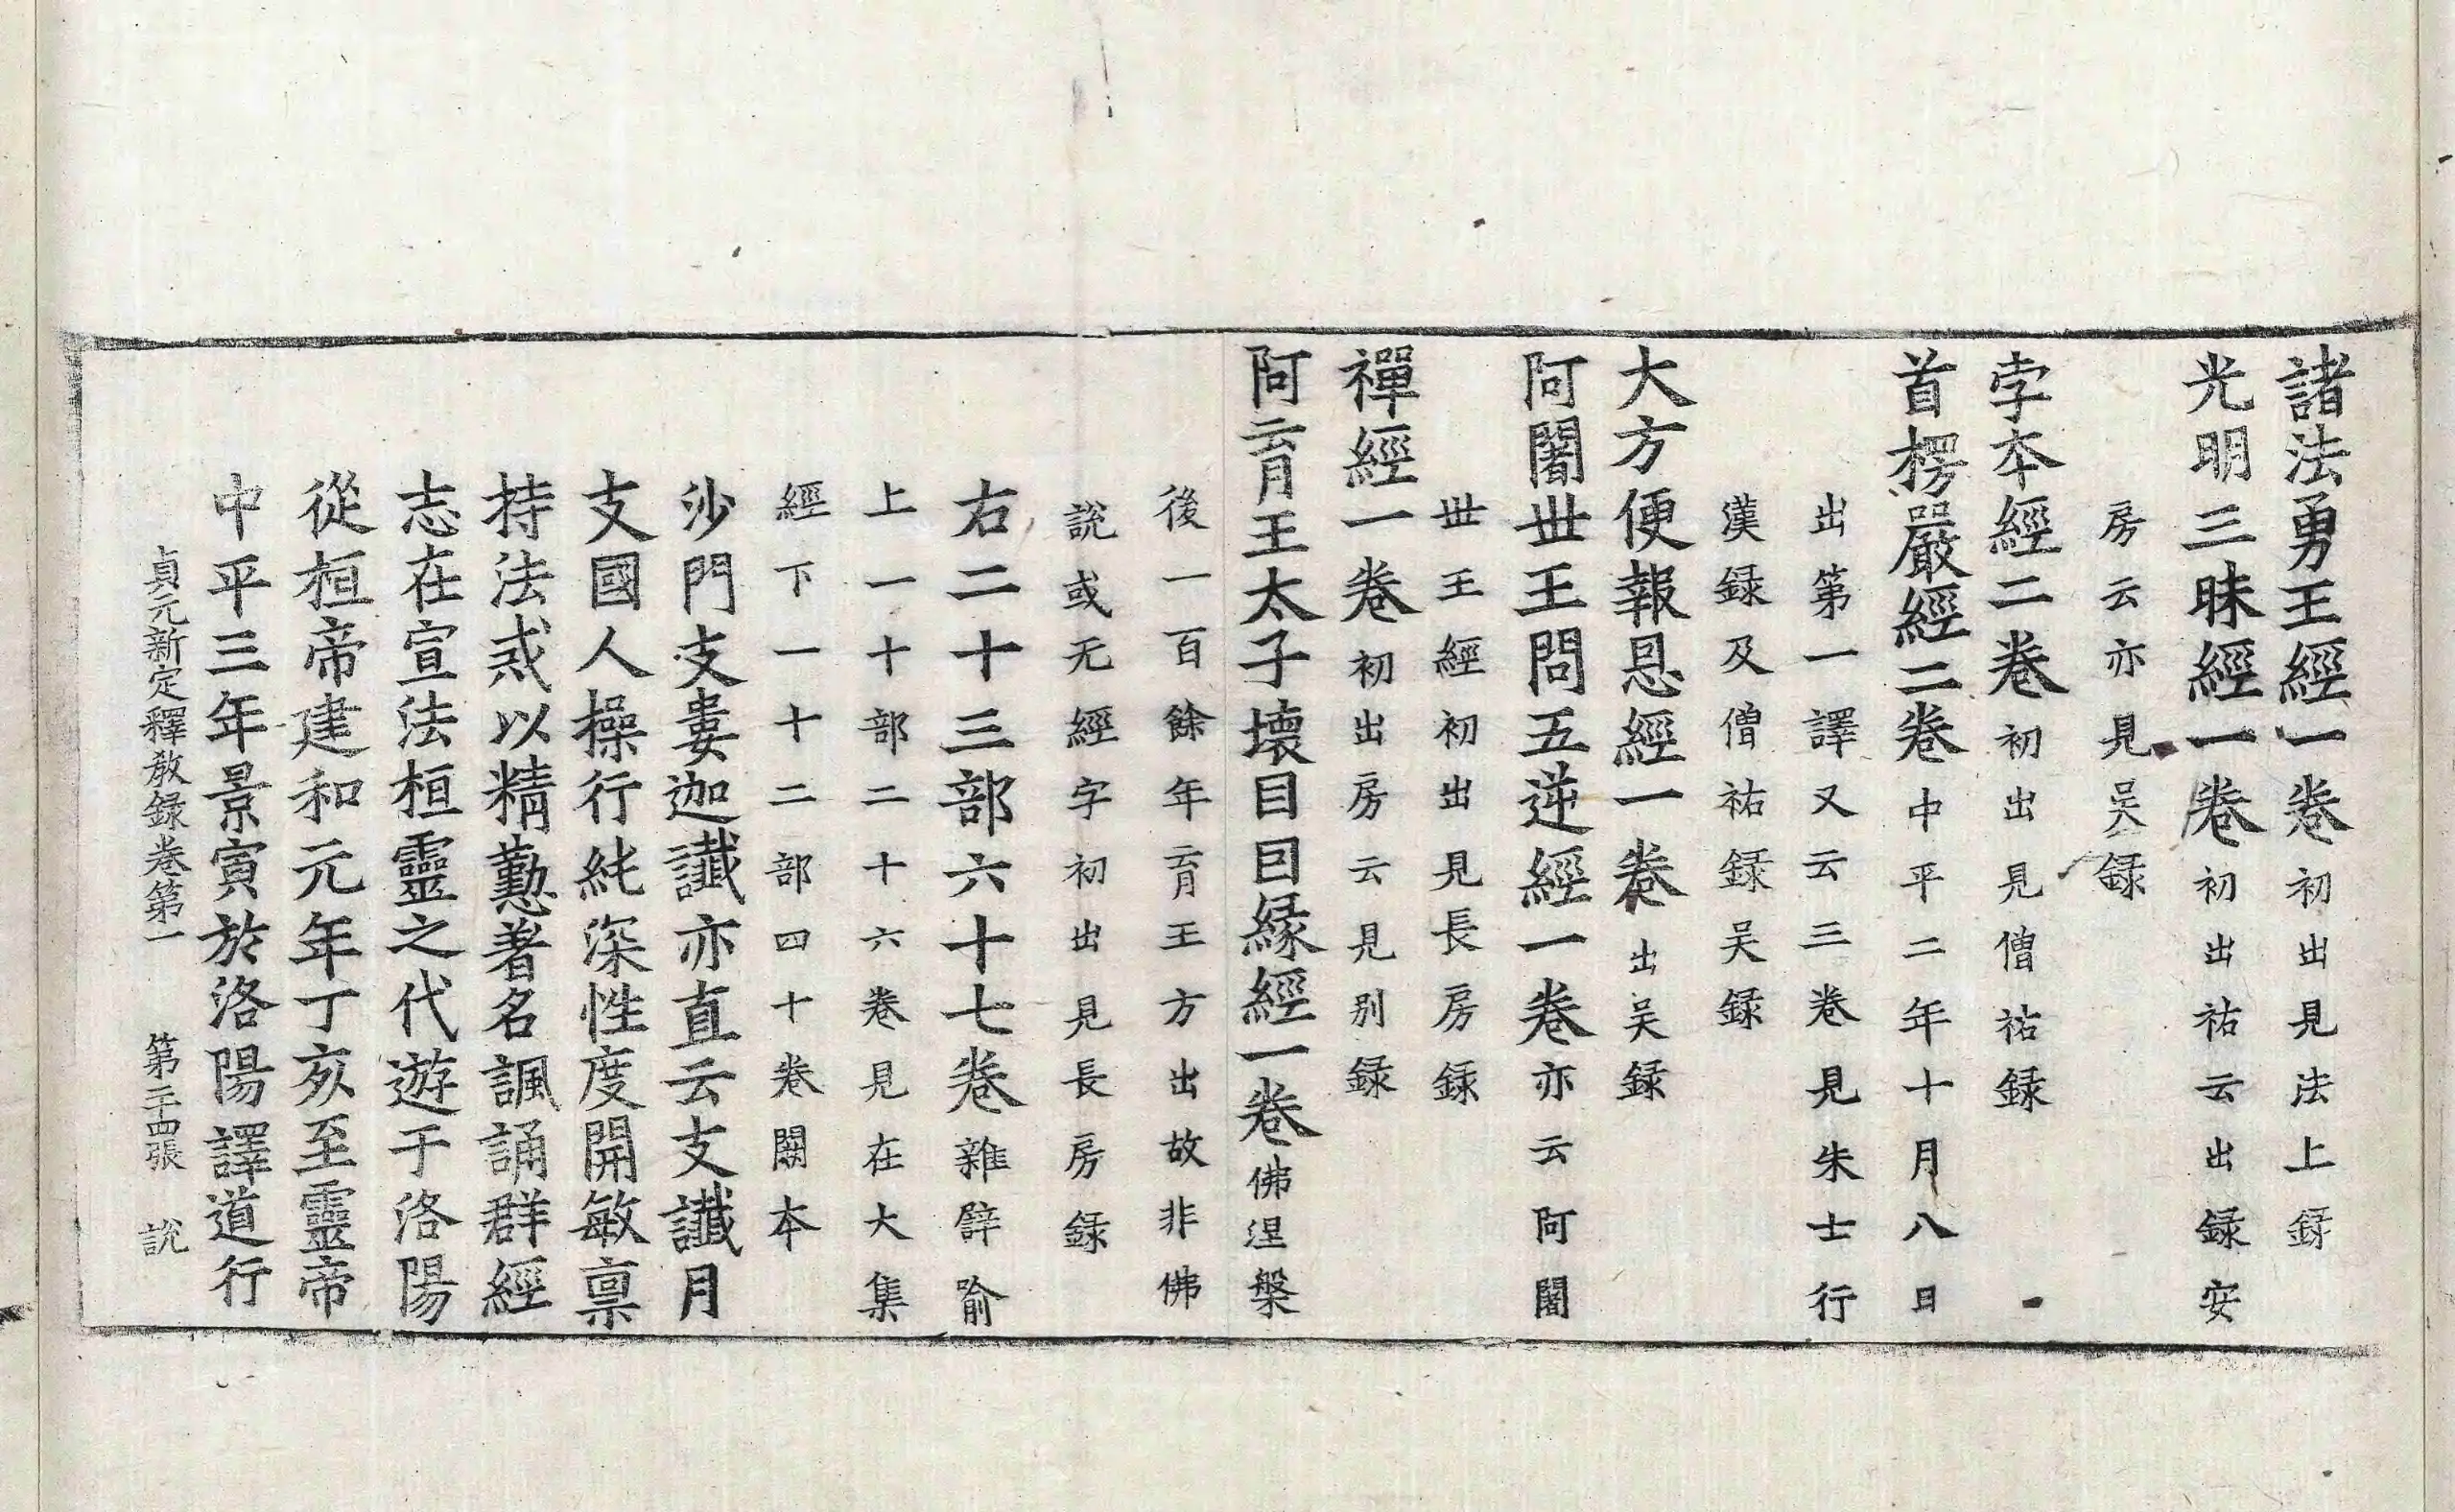 諸法勇王經一卷初出見法上録
光明三昧經一卷初出祐云出録安
房云亦見吴録
孛本經二卷初出見僧祐録
首楞嚴經二卷中平二年十月八日
出第一譯又云三卷見朱士行
漢録及僧祐録吴録
大方便報恩經一卷出吴録
阿闍丗王問五逆經一卷亦云阿闍
丗王經初出見長房録
禪經一卷初出房云見别録
阿育王太子壞目因緣經一卷佛涅槃
後一百餘年育王方出故非佛
說或无經字初出見長房録
右二十三部六十七卷雜辟喻
上一十部二十六卷見在大集
經下一十二部四十卷闕本
沙門支婁迦讖亦直云支讖月
支國人操行純深性度開敏禀
持法戒以精懃著名諷誦群經
志在宣法桓靈之代遊于洛陽
從桓帝建和元年丁亥至靈帝
中平三年景寅於洛陽譯道行
貞元新定釋教録卷第一 第二十四張 說